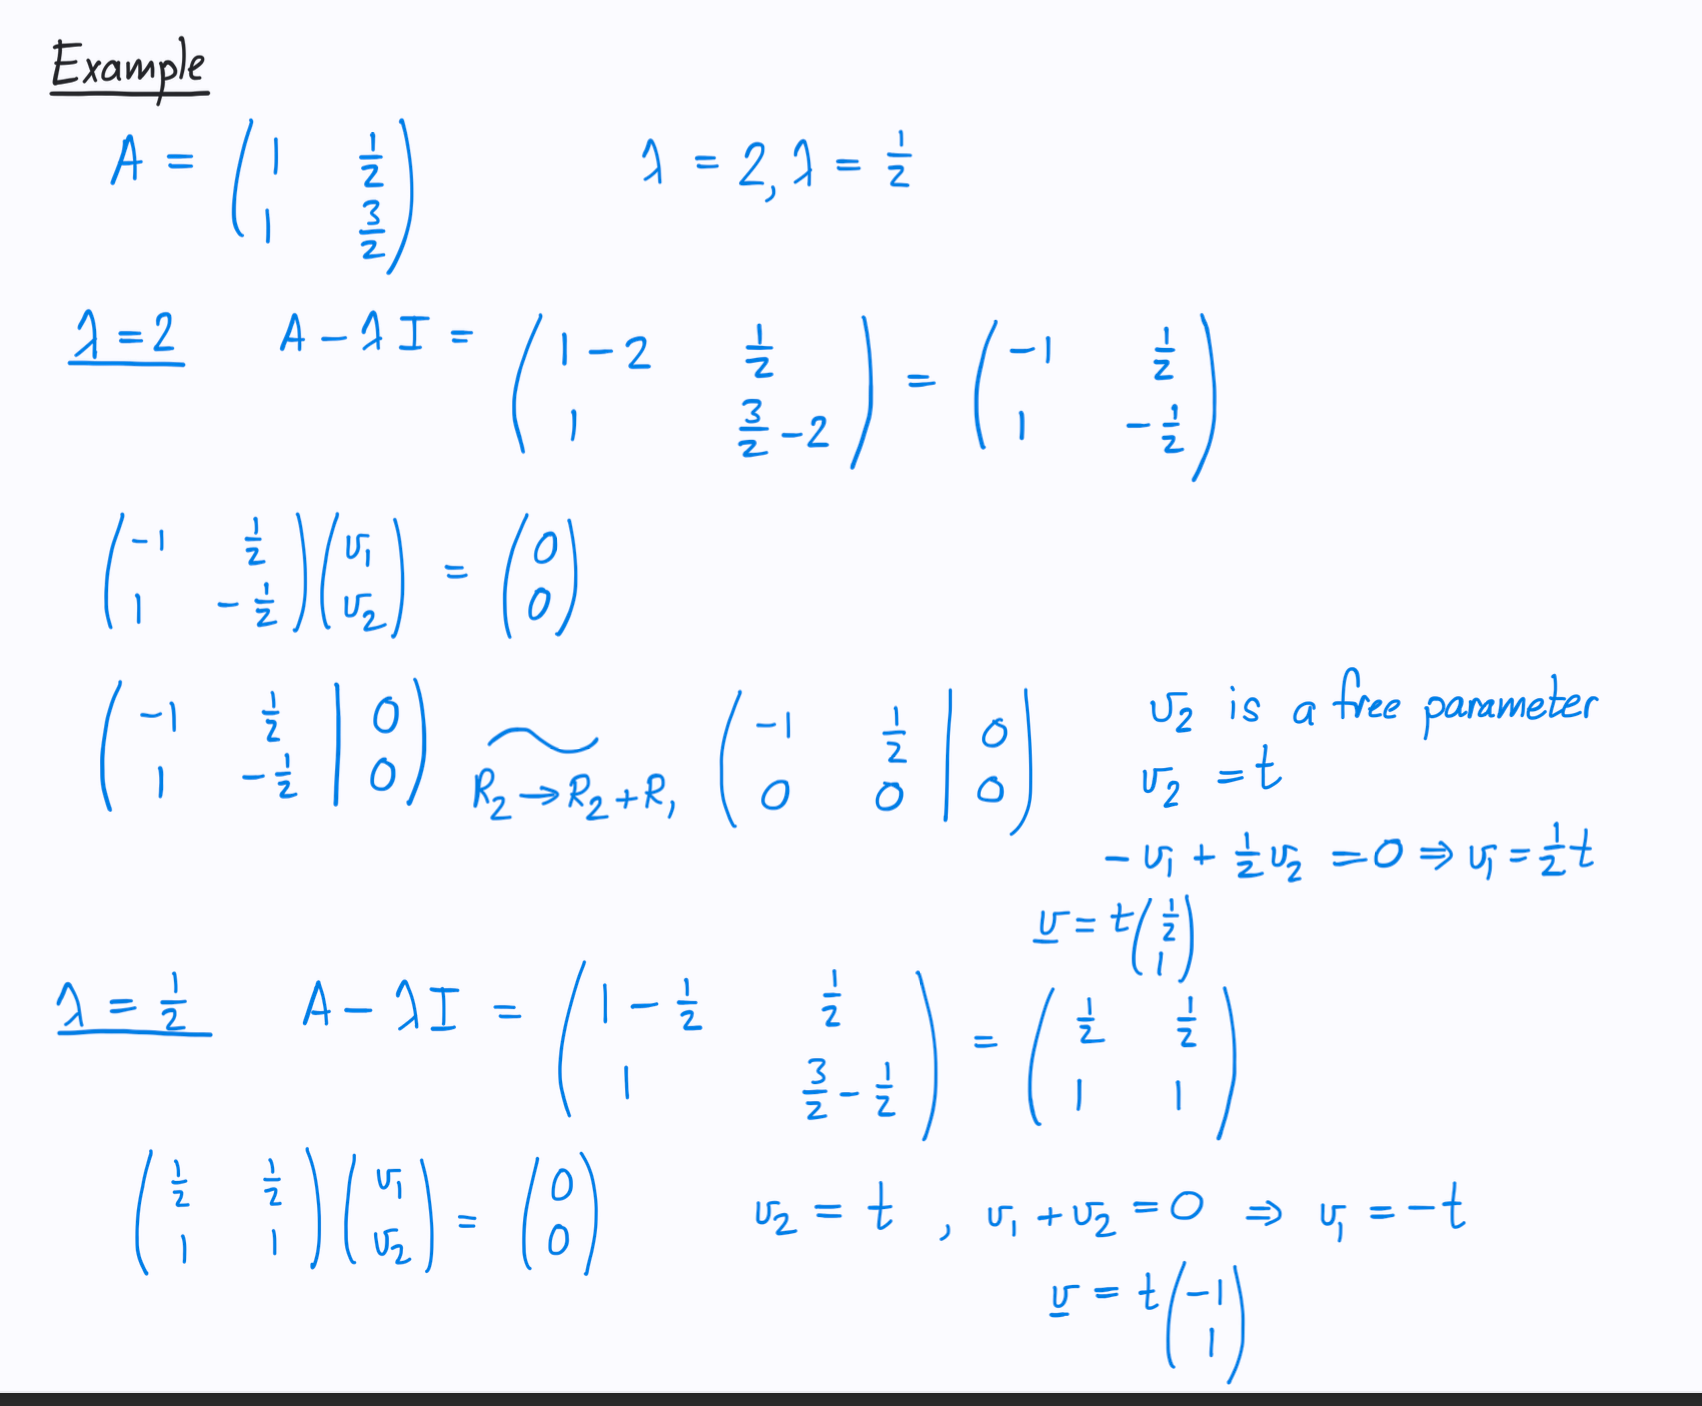 Example
A = ( 1 1/2 ; 1 3/2 ) λ = 2, λ = 1/2
λ = 2 A − λI = ( 1−2 1/2 ; 1 3/2−2 ) = ( −1 1/2 ; 1 −1/2 )
( −1 1/2 ; 1 −1/2 )( v₁ ; v₂ ) = ( 0 ; 0 )
( −1 1/2 | 0 ; 1 −1/2 | 0 ) ~ R₂→R₂+R₁ ( −1 1/2 | 0 ; 0 0 | 0 )
v₂ is a free parameter
v₂ = t
−v₁ + 1/2 v₂ = 0 ⇒ v₁ = 1/2 t
v = t( 1/2 ; 1 )
λ = 1/2 A − λI = ( 1−1/2 1/2 ; 1 3/2−1/2 ) = ( 1/2 1/2 ; 1 1 )
( 1/2 1/2 ; 1 1 )( v₁ ; v₂ ) = ( 0 ; 0 ) v₂ = t , v₁ + v₂ = 0 ⇒ v₁ = −t
v = t( −1 ; 1 )